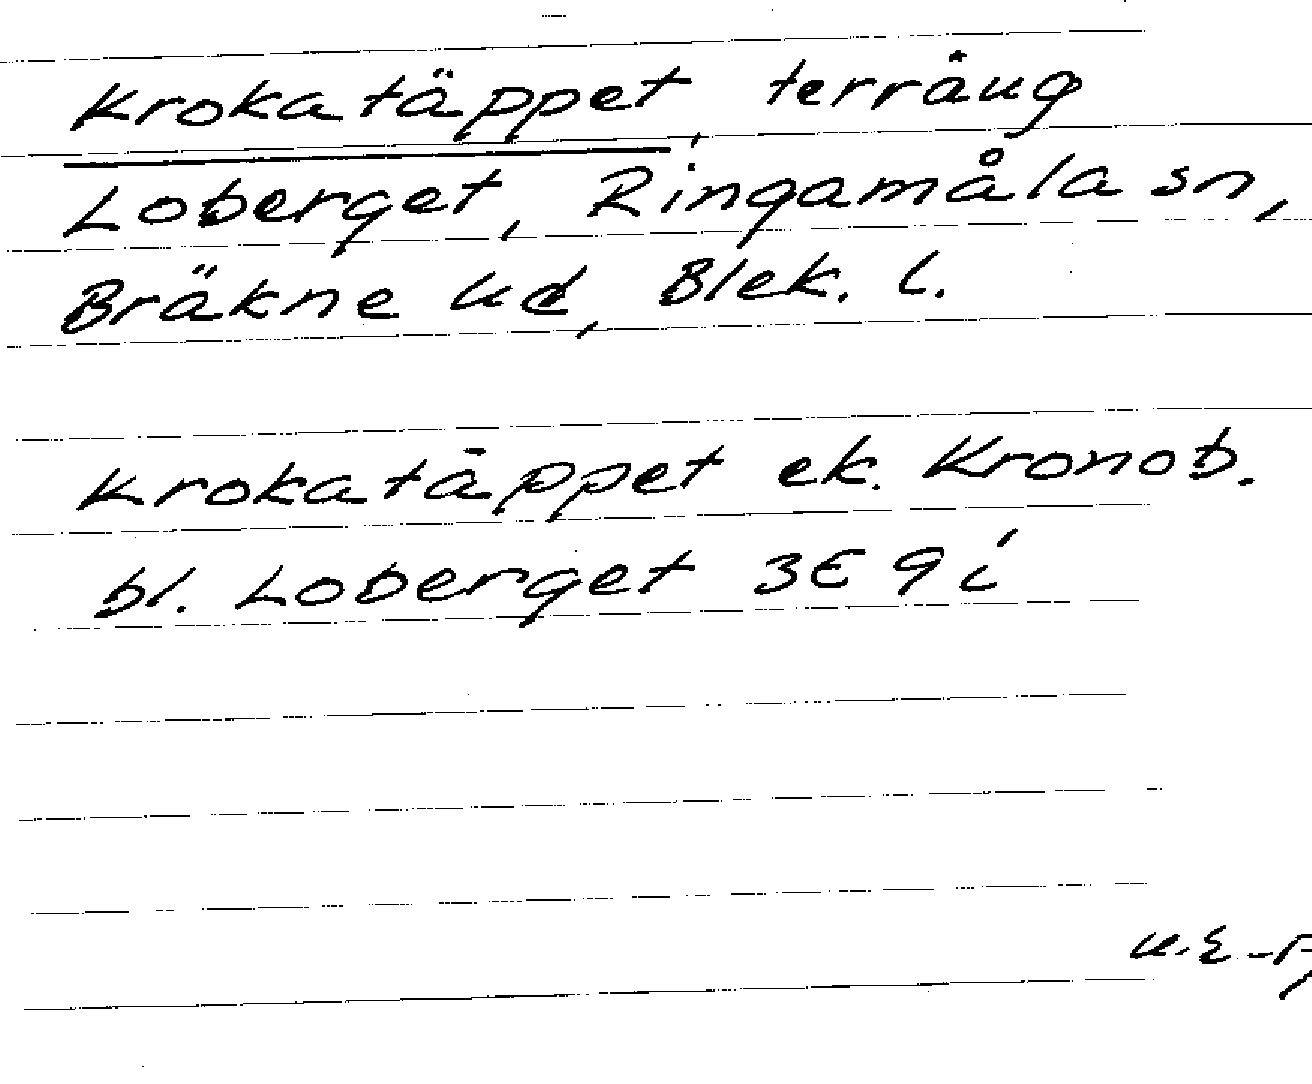 Krokatäppet, terräng
Loberget, Ringamåla sn,
Bräkne hd, Blek. l.
Krokatäppet ek. Kronob.
bl. Loberget 3E 9i